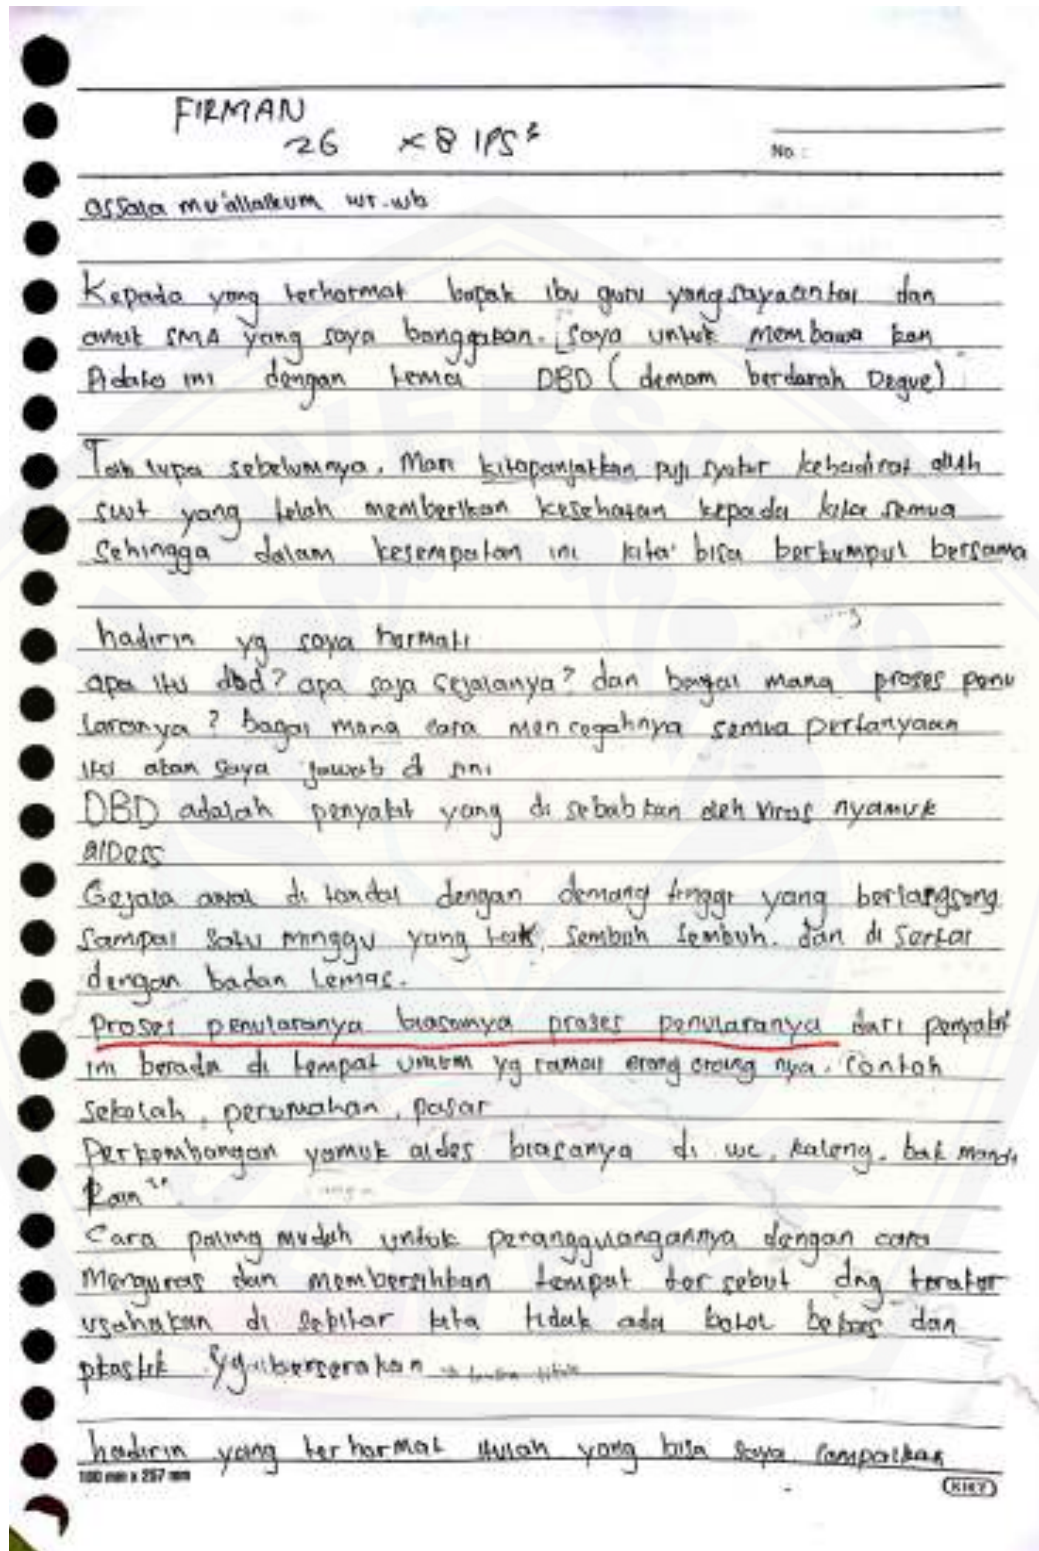 FIRMAN
26 X8 IPS³
No :
assala mu'allaikum wr.wb
Kepada yang terhormat bapak ibu guru yang saya cintai dan
anak SMA yang saya banggakan. [saya untuk membawa kan
Pidato ini dengan tema DBD ( demam berdarah Degue)
Tak lupa sebelumnya, Mari kitapanjatkan puji syukur kehadirat allah
swt yang telah memberikan kesehatan kepada kita semua
Sehingga dalam kesempatan ini kita bisa berkumpul bersama
hadirin yg saya hormati
apa itu dbd? apa saja Gejalanya? dan bagai mana proses penu
laranya ? bagai mana cara mencegahnya semua pertanyaan
itu akan saya jawab di sini
DBD adalah penyakit yang di sebabkan oleh virus nyamuk
aldess
Gejala awal di tandai dengan demang tinggi yang berlangsong
Sampai satu minggu yang tak sembuh sembuh. dan di sertai
dengan badan lemas.
Proses penularanya biasanya proses penularanya dari penyakit
ini berada di tempat umum yg ramai orang orang nya. Contoh
sekolah, perumahan, pasar
Perkembangan yamuk aides biasanya di wc, kaleng, bak mandi
Cara paling mudah untuk penanggulangannya dengan cara
Menguras dan membersihkan tempat tersebut dng teratur
usahakan di sekitar kita tidak ada botol bekas dan
plastik yg berserakan
hadirin yang terhormat itulah yang bisa saya sampaikan
180 mm x 257 mm
KIKY